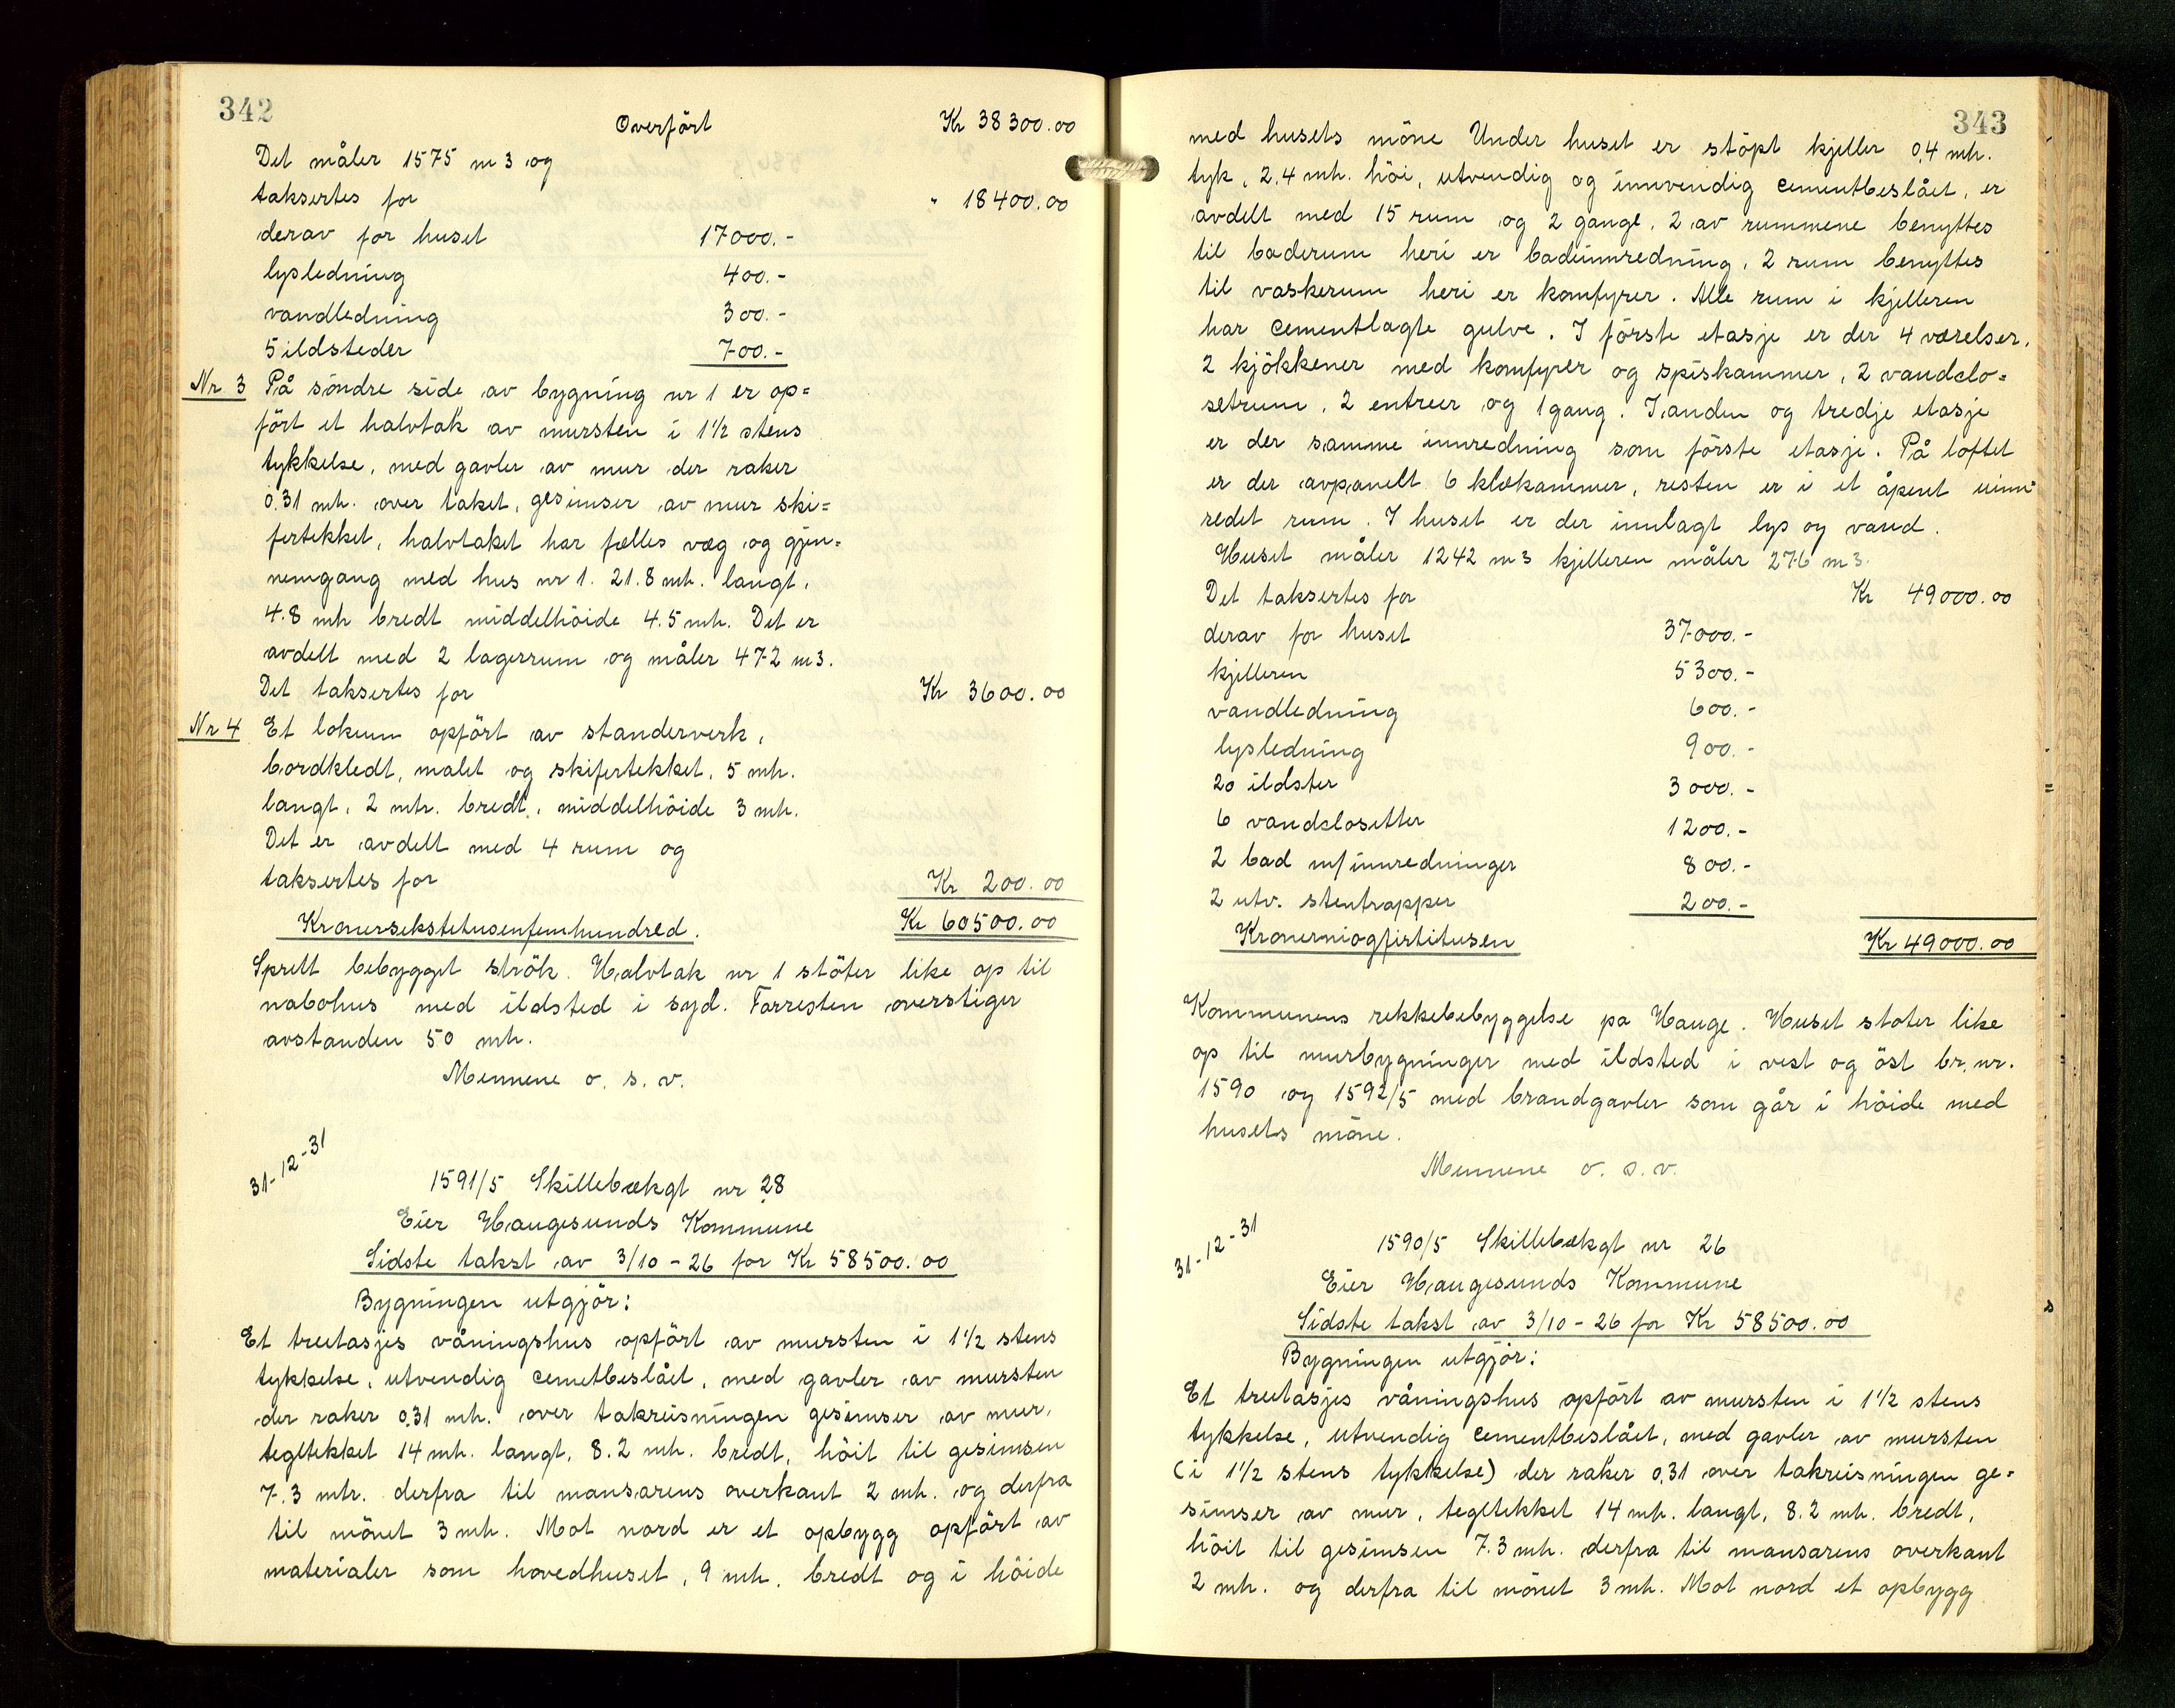 342
Overført Kr 38300.00
Det måler 1575 m3 og
taksertes for " 18400.00
derav for huset 17000.-
lysledning 400.-
vandledning 300.-
5 ildsteder 700.-
Nr 3 På söndre side av bygning nr 1 er op=
fört et halvtak av mursten i 1½ stens
tykkelse, med gavler av mur der raker
0.31 mtr. over taket, gesimser av mur ski=
fertekket, halvtaket har fælles væg og gjen=
nemgang med hus nr 1. 21.8 mtr. langt,
4.8 mtr bredt middelhöide 4.5 mtr. Det er
avdelt med 2 lagerrum og måler 472 m3.
Det taksertes for Kr 3600.00
Nr 4 Et lokum opfört av standerverk,
bordkledt, malet og skifertekket, 5 mtr.
langt, 2 mtr. bredt, middelhöide 3 mtr.
Det er avdelt med 4 rum og
taksertes for Kr 200.00
Kronersekstitusenfemhundred. Kr 60500.00
Spredt bebygget strök. Halvtak nr 1 stöter like op til
nabohus med ildsted i syd. Forresten overstiger
avstanden 50 mtr.
Mennene o. s. v.
31-12-31
1591/5 Skillebækgt nr 28
Eier Haugesunds Kommune
Sidste takst av 3/10-26 for Kr 58500.00
Bygningen utgjör:
Et treetasjes våningshus opfört av mursten i 1½ stens
tykkelse, utvendig cemetbeslået, med gavler av mursten
der raker 0,31 mtr. over takreisningen gesimser av mur,
tegltekket 14 mtr. langt, 8.2 mtr. bredt, höit til gesimsen
7.3 mtr. derfra til mansarens overkant 2 mtr. og derfra
til mönet 3 mtr. Mot nord er et opbygg opfört av
materialer som hovedhuset, 9 mtr. bredt og i höide
343
med husets möne Under huset er stöpt kjeller 0,4 mtr.
tyk, 2,4 mtr. höi, utvendig og innvendig cementbeslået, er
avdelt med 15 rum og 2 gange, 2 av rummene benyttes
til baderum heri er badeinnredning, 2 rum benyttes
til vaskerum heri er komfyrer. Alle rum i kjelleren
har cementlagte gulve. I förste etasje er der 4 værelser,
2 kjökkener med komfyrer og spiskammer, 2 vandclo=
setrum, 2 entreer og 1 gang. I anden og tredje etasje
er der samme innredning som förste etasje. På loftet
er der avpanelt 6 klækammer, resten er i et åpent uinn=
redet rum. I huset er der innlagt lys og vand.
Huset måler 1242 m3 kjelleren måler 276 m3.
Det taksertes for Kr 49000.00
derav for huset 37000.-
kjelleren 5300.-
vandledning 600.-
lysledning 900.-
20 ildster 3000.-
6 vandclosetter 1200.-
2 bad m/innredninger 800.-
2 utv. stentrapper 200.-
Kronerniogfirtitusen Kr 49000.00
Kommunens rekkebebyggelse pa Hauge. Huset stoter like
op til murbygninger med ildsted i vest og öst br. nr.
1590 og 1592/5 med brandgavler som går i höide med
husets möne.
Mennene o. s. v.
31-12-31
1590/5 Skillebækgt nr 26
Eier Haugesunds Kommune
Sidste takst av 3/10-26 for Kr 58500.00
Bygningen utgjör:
Et treetasjes våningshus opfört av mursten i 1½ stens
tykkelse, utvendig cementbeslået, med gavler av mursten
(i 1½ stens tykkelse) der raker 0,31 over takreisningen ge=
simser av mur, tegltekket 14 mtr. langt, 8.2 mtr. bredt,
höit til gesimsen 7.3 mtr. derfra til mansarens overkant
2 mtr. og derfra til mönet 3 mtr. Mot nord et opbygg